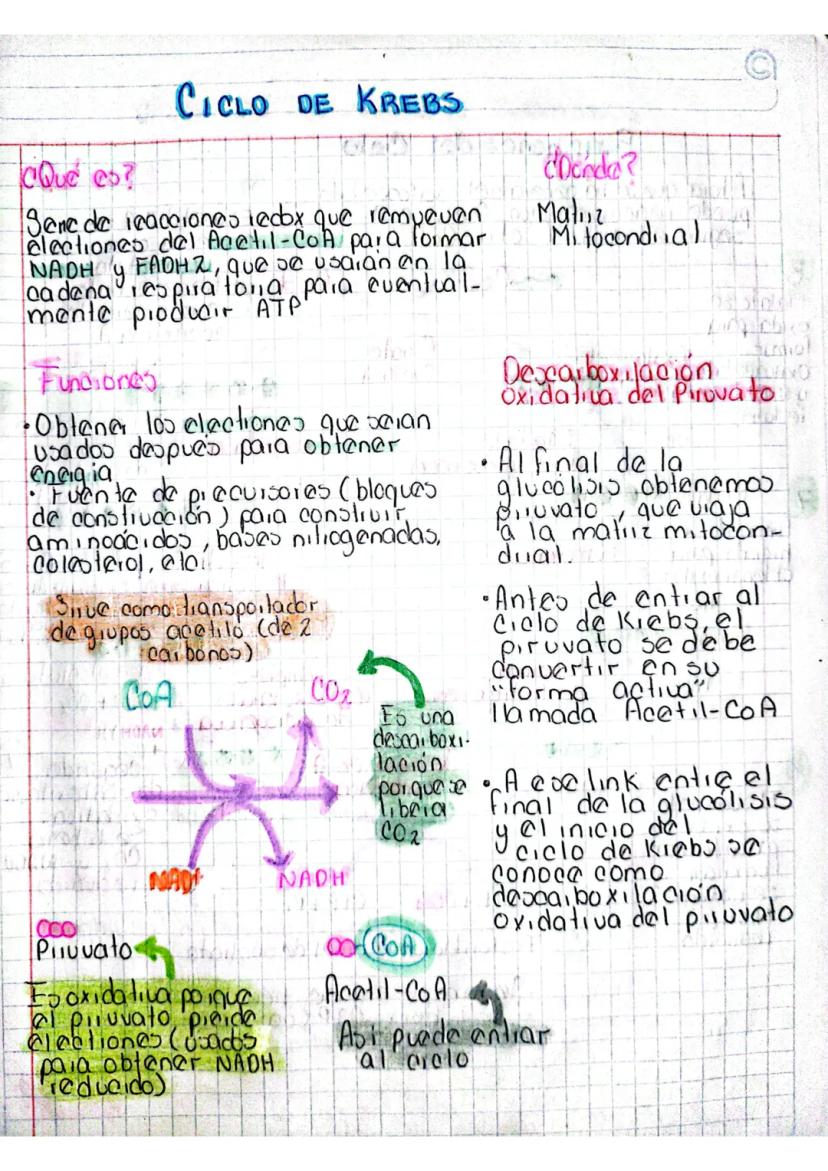 ©
CICLO DE KREBS
¿Qué es?
Serie de reacciones redox que remueven
electrones del Acetil-CoA para formar
NADH y FADH2, que se usarán en la
cadena respiratoria para eventual-
mente producir ATP
¿Dónde?
Matriz
Mitocondrial
Funciones
• Obtener los electrones que serán
usados después para obtener
energía
• Fuente de precursores (bloques
de construcción) para construir
aminoácidos, bases nitrogenadas,
colesterol, etc.
Descarboxilación
Oxidativa del Piruvato
• Al final de la
glucólisis obtenemos
piruvato, que viaja
a la matriz mitocon-
drial.
• Antes de entrar al
ciclo de Krebs, el
piruvato se debe
convertir en su
"forma activa"
llamada Acetil-CoA
• A ese link entre el
final de la glucólisis
y el inicio del
ciclo de Krebs se
conoce como
descarboxilación
oxidativa del piruvato
Sirve como transportador
de grupos acetilo (de 2
carbonos)
CoA
CO2
Es una
descarboxi-
lación
porque se
libera
CO2
NAD+
NADH
Piruvato
CoA
Acetil-CoA
Es oxidativa porque
el piruvato pierde
electrones (usados
para obtener NADH
reducido)
Así puede entrar
al ciclo